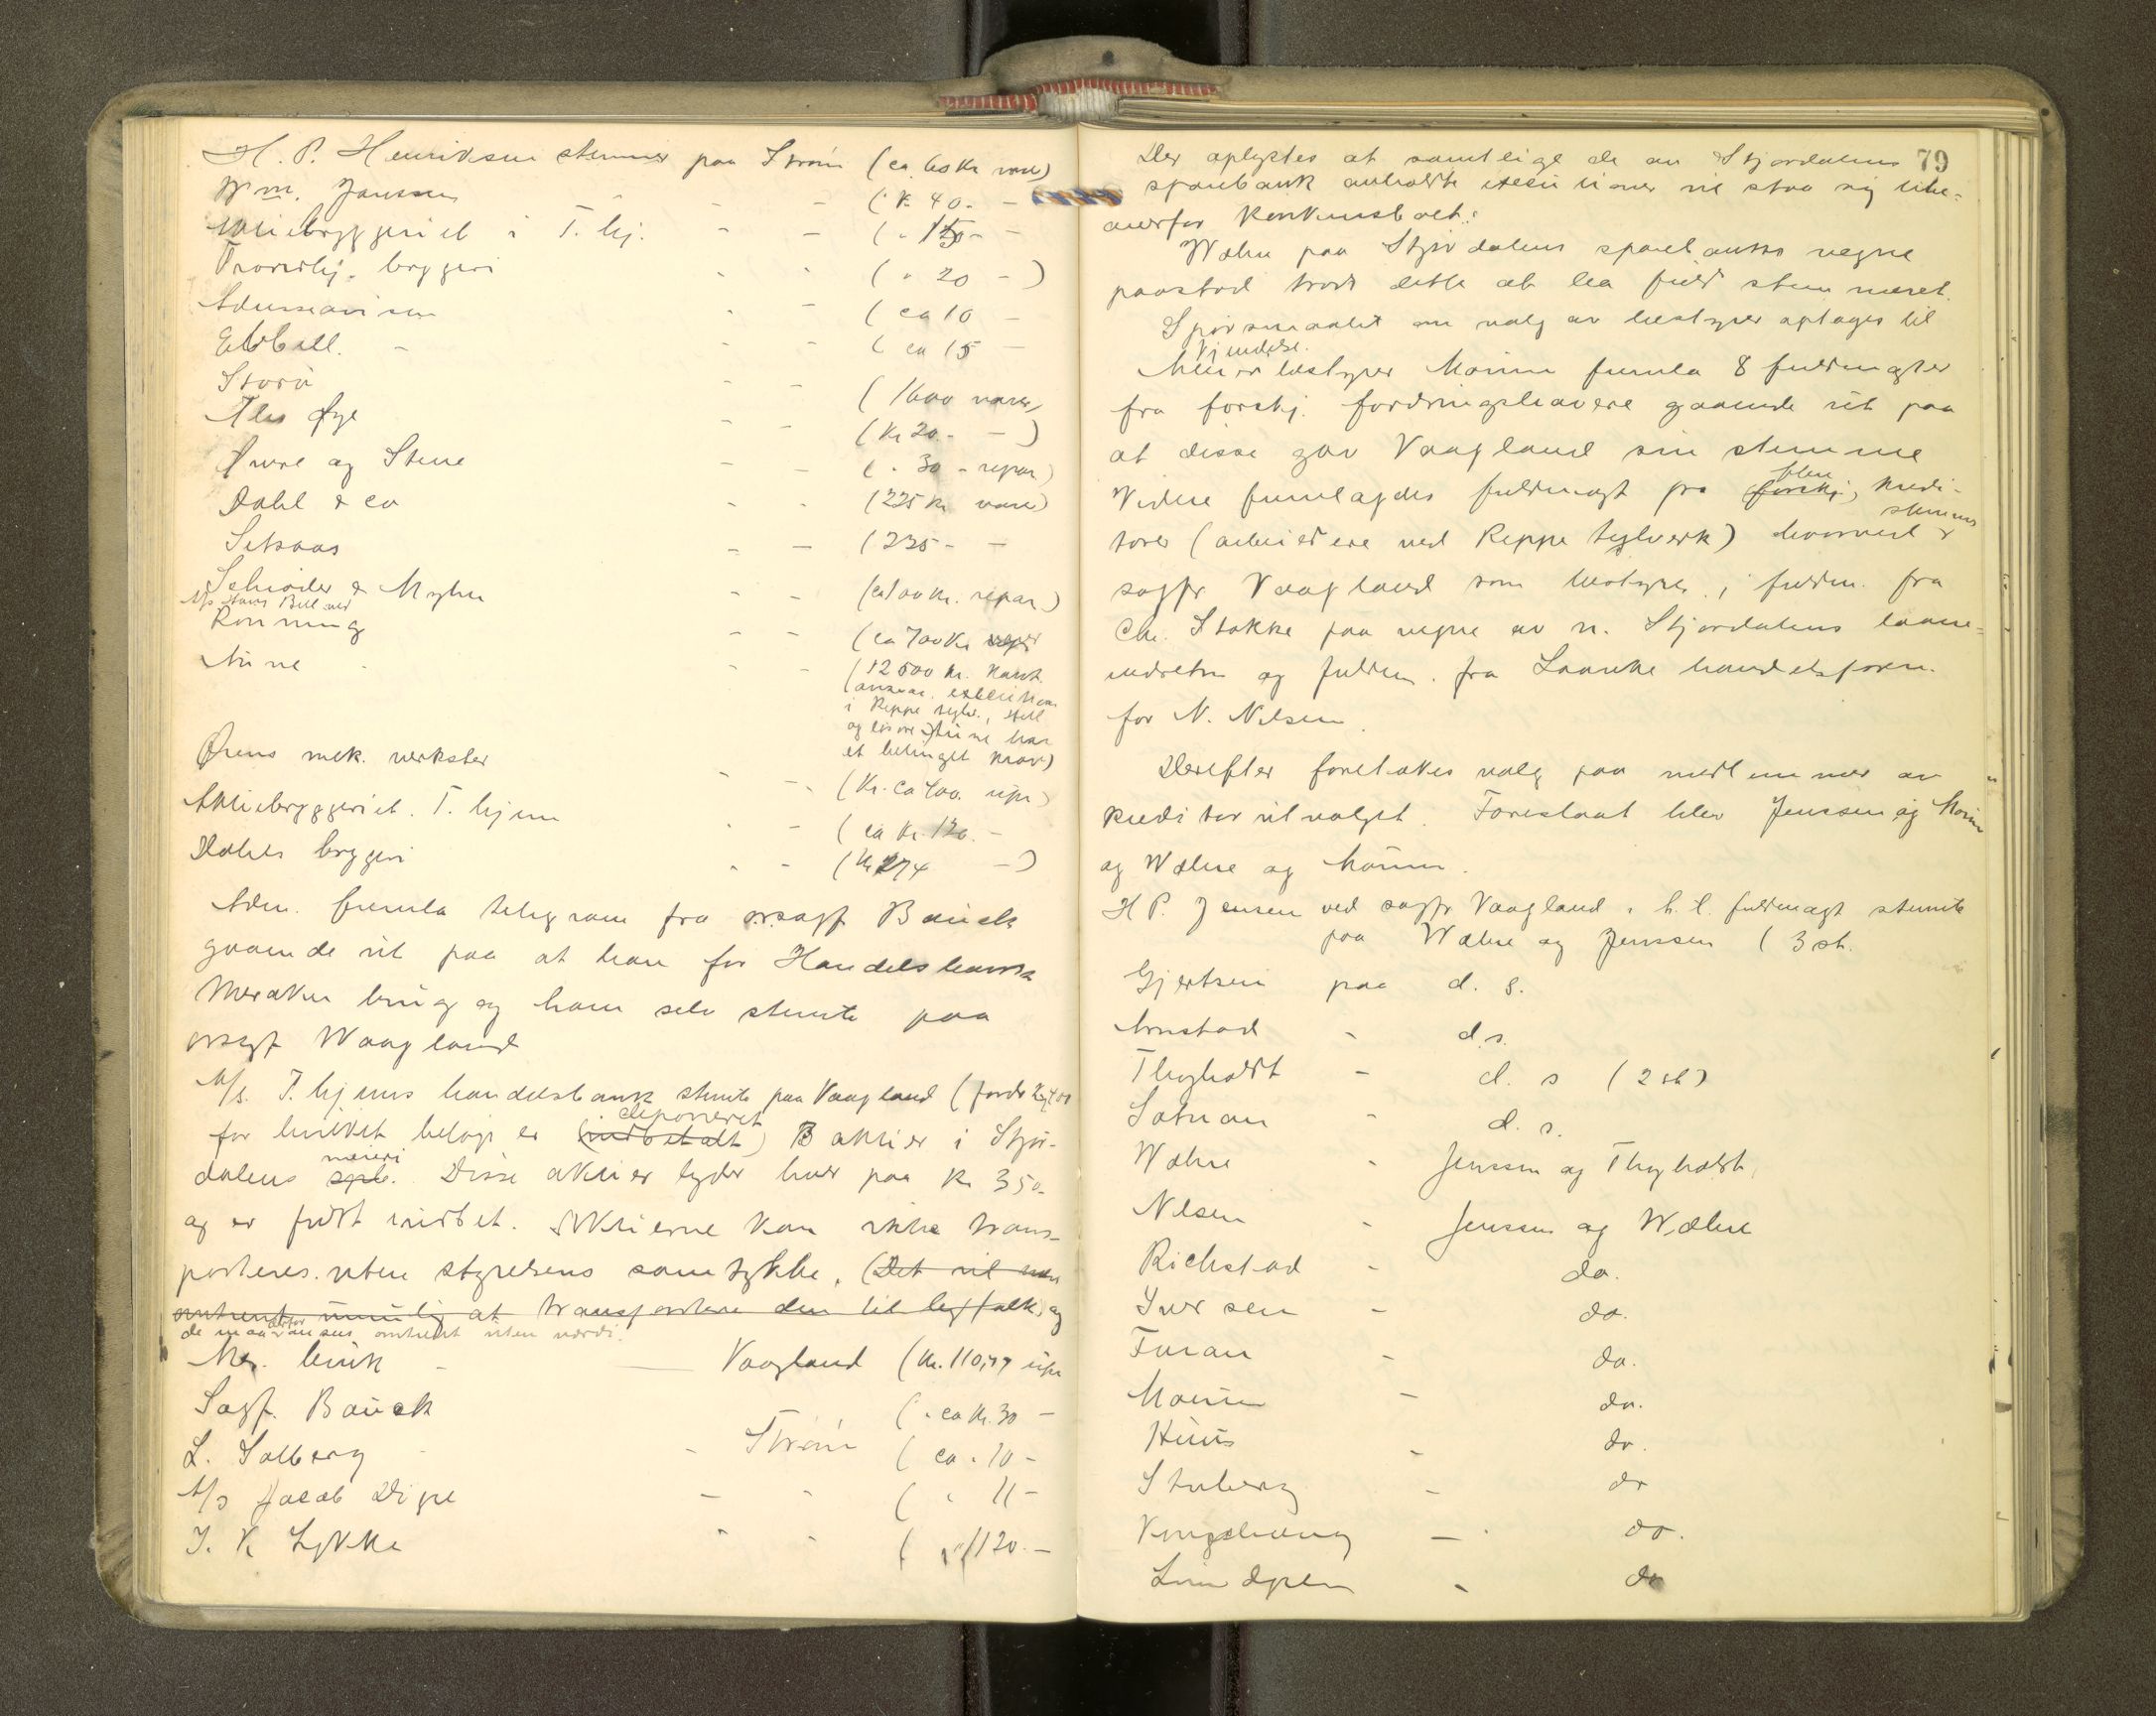 H. P. Henriksen stemmer paa Strøm (ca. 60 Kr vare)
Wm. Janssen - - (K. 40.- -
Aktiebryggeriet i T.hj. - - ( - 150 - -
Trondhj. bryggeri - - ( " 20 - )
Adresseavisen - - ( ca 10 -
E. - - ( ca 15 -
Storø - - ( 1600 varer)
Øye - - (Kr 20.- - )
og Stene - - ( - 30 - repar)
Dahl & co - - (225 Kr vare)
Setsaas - - (225 - -
Schrøder & Myhre - - (ca 100 Kr. repar)
A/s
Rønning - - (ca 700 Kr
Aune - - (12500 Kr.
i Reppe teglv.,
og løsøre Aune har
et betinget krav)
Ørens mek. verksted - - (Kr. ca 400. rep)
Aktiebryggeriet. T.hjem - - ( ca Kr. 120. -
Dahls bryggeri - - (Kr 274 - )
Adm. fremla telegram fra orsagf Bauck
gaaende ut paa at han for Handelsbanken
Meraker brug og ham selv stemte paa
orsagf Waagland
A/s. T.hjems handelsbank stemte paa Vaagland (fordr
deponeret
for hvilket beløp er (indbetalt) B aktier i Stjør-
meieri
dalens spb. Disse aktier lyder hver paa Kr 350.-
og er fuldt indbet. Aktierne kan ikke trans-
porteres uten styrelsens samtykke. (Det vil
omtrent umulig at transportere dem til og
derfor
de maa ansees omtrent uten værdi.
Mer. bruk - Vaagland (Kr. 110,77
Sagf. Bauck ( " ca Kr. 30 -
L. Solberg - - Strøm ( ca " 10 -
A/s Jacob Digre - - ( " 11 -
J. K. Lykke - - ( 1120.-
79
Der oplystes at samtlige de av Stjørdalens
sparebank anholdte executioner vil staa sig like-
overfor konkursboet.
Wæhre paa Stjørdalens sparebanks vegne
paastod trods dette at ha fuld stemmeret.
Spørsmaalet om valg av bestyrer optages til
kjendelse.
bestyrer Moum fremla 8 fuldmagter
fra forskj. fordringshavere gaaende ut paa
at disse gav Vaagland sin stemme
flere
Videre fremlagdes fuldmagt fra forskj. kredi-
stemmes
torer (arbeidere ved Reppe teglverk) hvorved
sagfr Vaagland som bestyrer, fuldm. fra
Chr. Stokke paa vegne av n. Stjørdalens laane-
indretn og fuldm. fra Laanke handelsforen.
for N. Nilsen.
Derefter foretakes valg paa medlemmer av
kreditorutvalget. Foreslaat blev Jenssen og Moum
og Wæhre og Moum.
H P. Jensen ved sagfr Vaagland i h.t. fuldmagt stemte
paa Wæhre og Jenssen ( 3 st.
Gjertsen paa d. s.
Arnstad - d.s.
Thyholdt - d. s (2 st)
Sotnan - d. s.
Wæhre - Jenssen og Thyholdt
Nilsen - Jenssen og Wæhre
Richstad - do.
Iversen - do.
Furan - do.
Moum - do.
Huus - do.
Stuberg - do
- do.
Lindgren - do